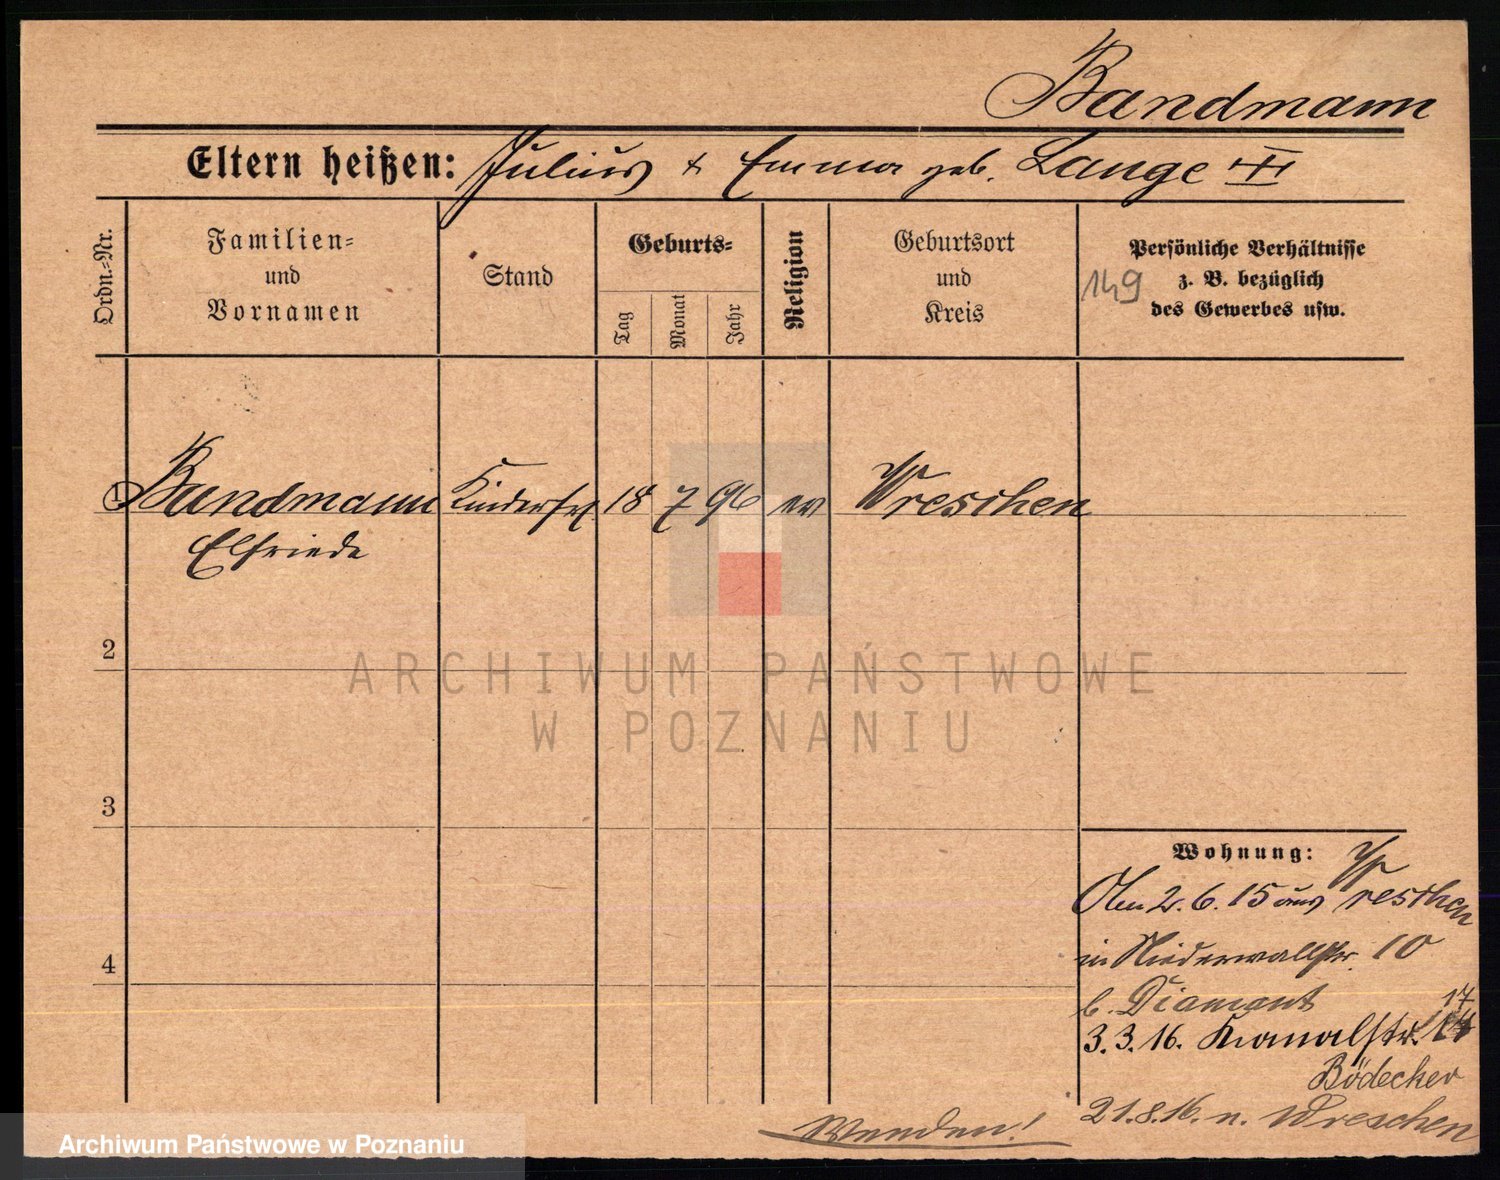 Bandmann
Eltern heißen: Julius & Emma geb. Lange III
Ordn.-Nr.
Familien- und Vornamen
Stand
Geburts-
Tag
Monat
Jahr
Religion
Geburtsort und Kreis
Persönliche Verhältnisse
z. B. bezüglich
des Gewerbes usw.
149
1 Bandmann Kinderfrl. 18 7 96 ev Wreschen
Elfriede
2
3
4
Wohnung:
Am 2.6.15 aus Wreschen
in Niederwallstr. 10
b. Diamant
17
3.3.16. Kanalstr.
Bödecker
21.8.16. n. Wreschen
Wenden!
ARCHIWUM PAŃSTWOWE
W POZNANIU
Archiwum Państwowe w Poznaniu